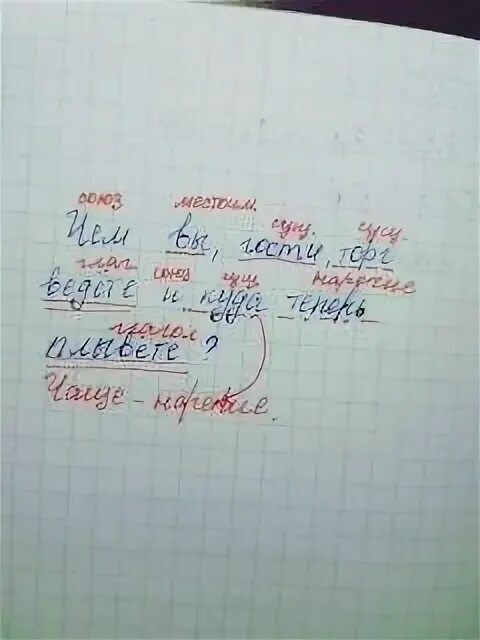 союз местоим.
Чем вы, гости, торг
сущ. сущ.
глаг союз сущ наречие
ведёте и куда теперь
глагол
плывёте ?
Чаще - наречие.